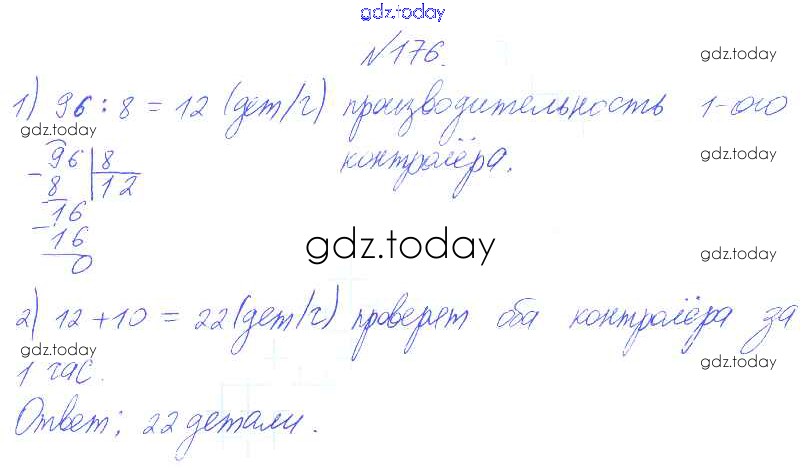 gdz.today
№176.
gdz.today
1) 96 : 8 = 12 (дет/ч) производительность 1-ого
gdz.today
контролёра.
gdz.today
96 8
- 8 12
16
- 16
0
gdz.today
gdz.today
2) 12 + 10 = 22 (дет/ч) проверят оба контролёра за
gdz.today
1 час.
gdz.today
Ответ: 22 детали.